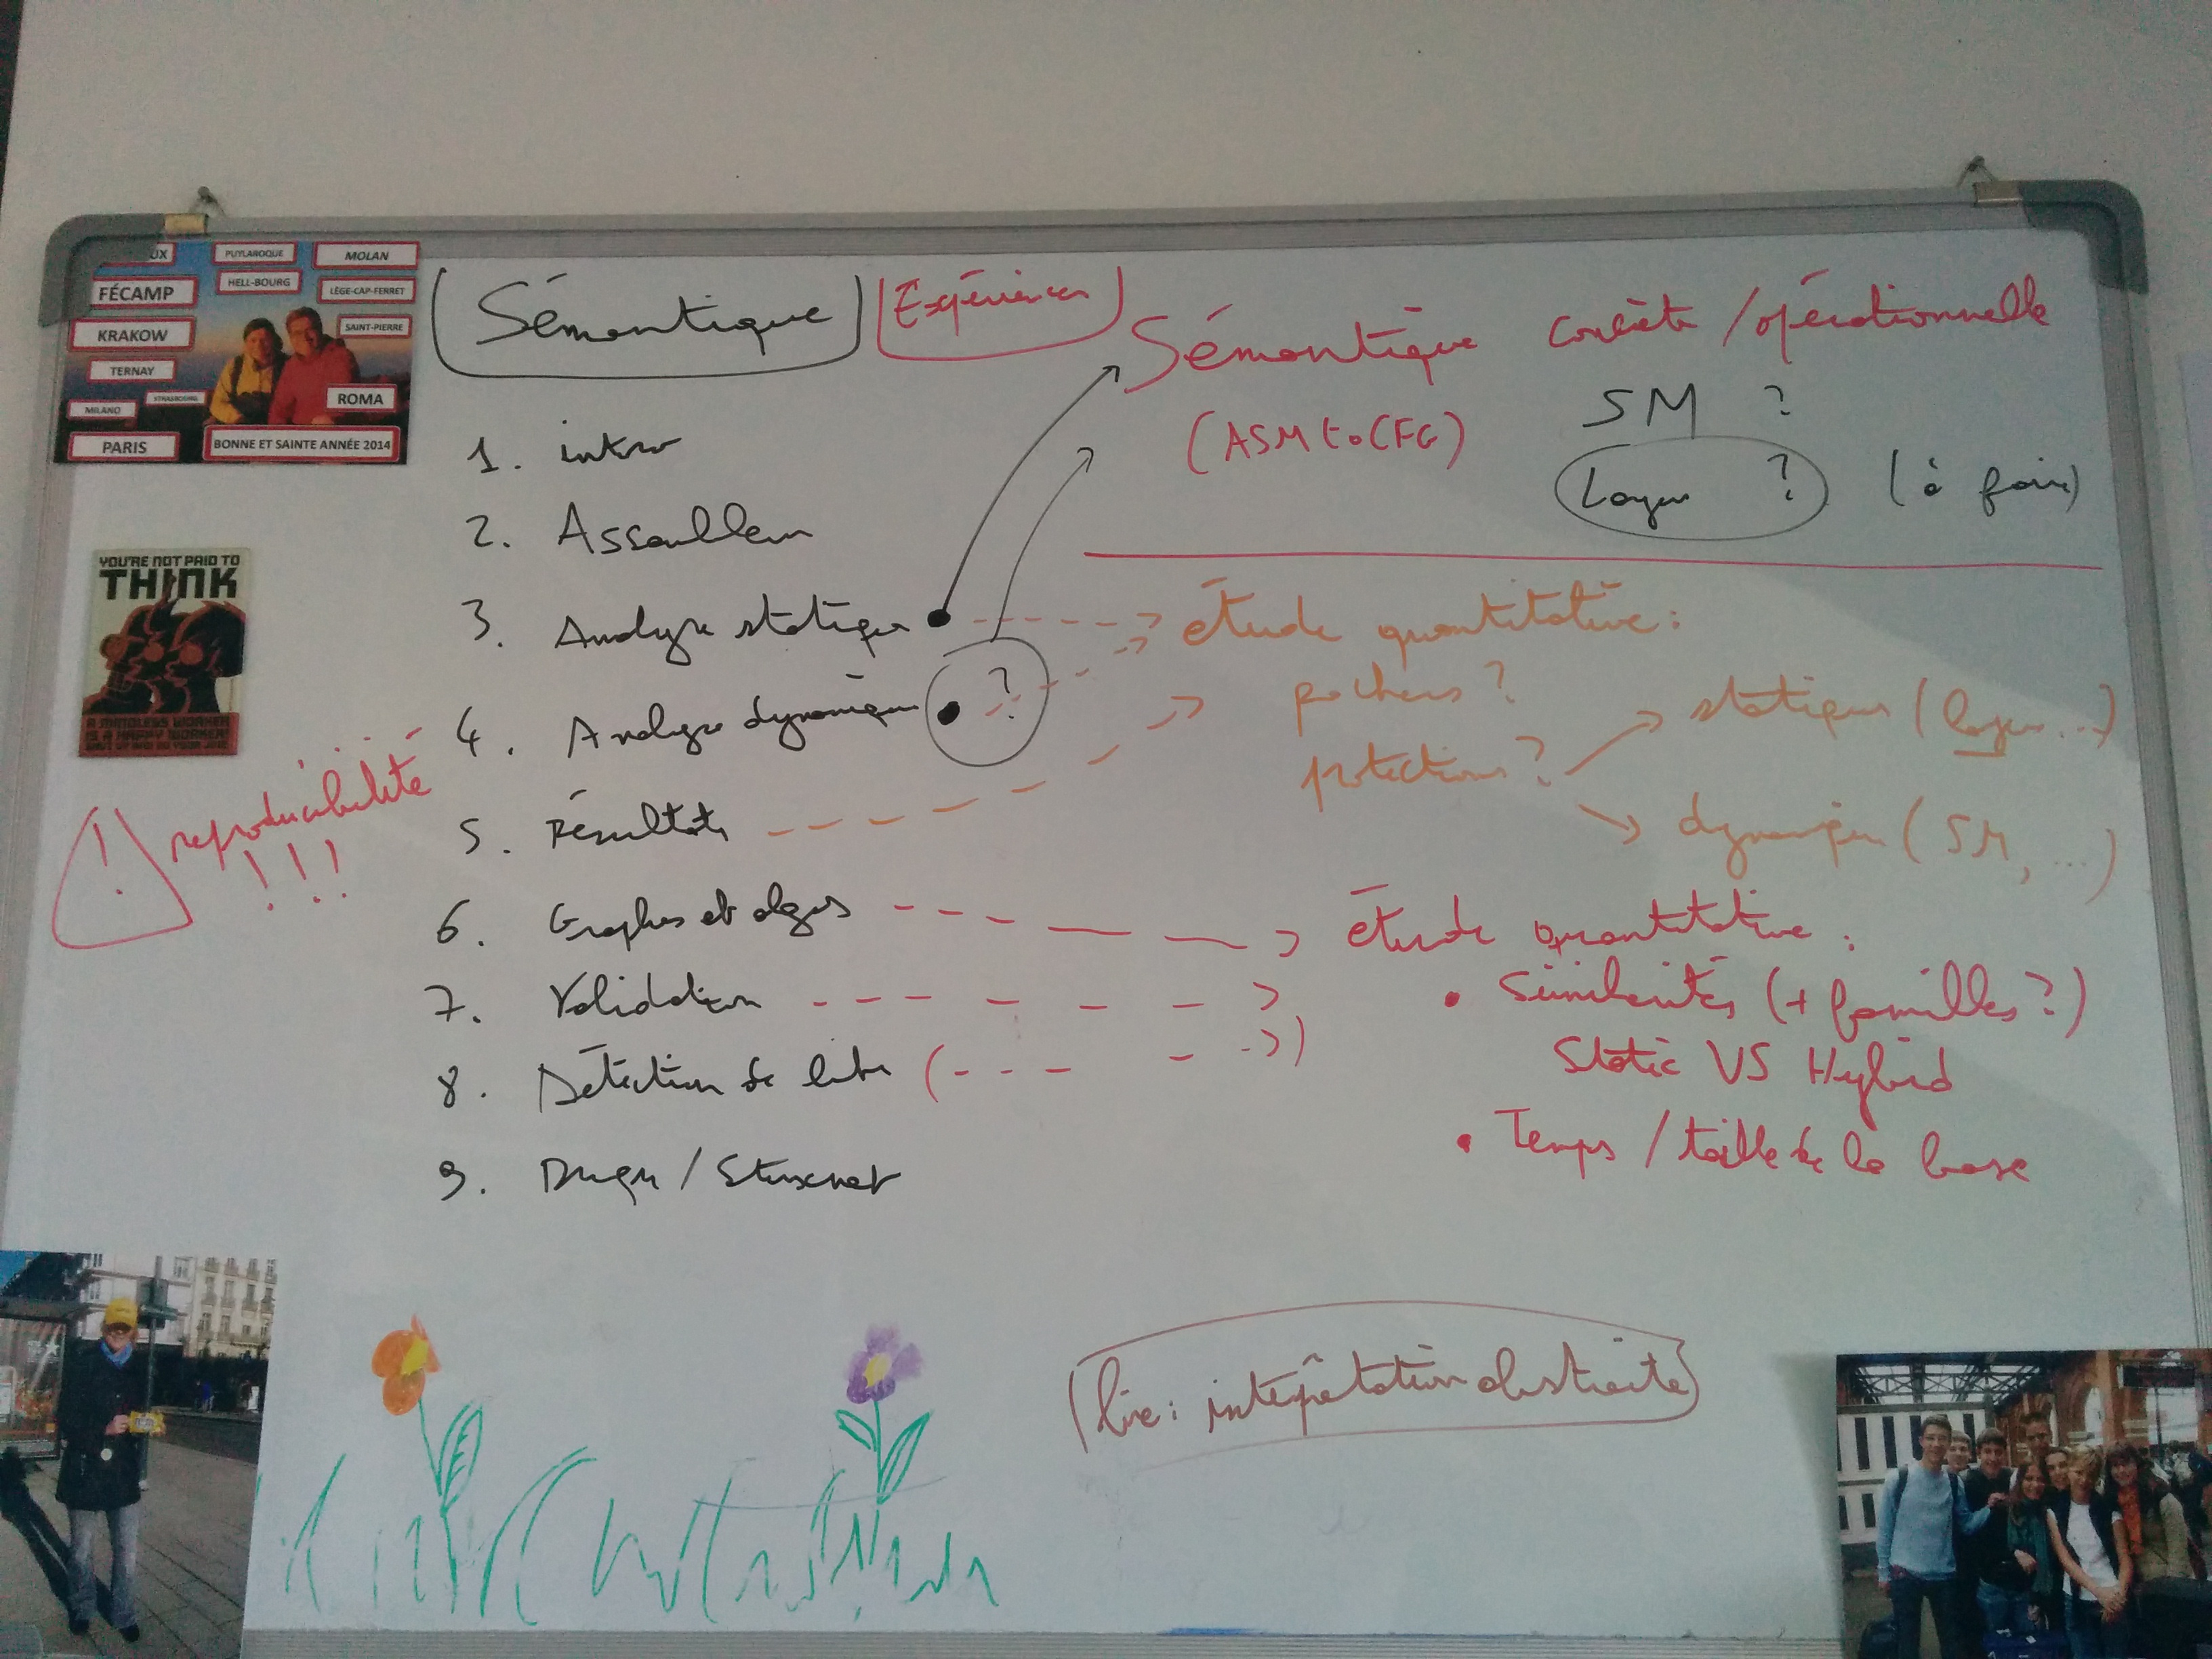 UX
PUYLAROQUE
MOLAN
FÉCAMP
HELL-BOURG
LÈGE-CAP-FERRET
KRAKOW
SAINT-PIERRE
TERNAY
STRASBOURG
MILANO
ROMA
PARIS
BONNE ET SAINTE ANNÉE 2014
YOU'RE NOT PAID TO
THINK
A MINDLESS WORKER
IS A HAPPY WORKER!
SHUT UP AND DO YOUR JOB!
! reproducibilité
! ! !
Sémantique
Expériences
1. intro
2. Assembleur
3. Analyse statique
4. Analyse dynamique ?
5. Résultats
6. Graphes et algos
7. Validation
8. Détection de libs
9. Duqu / Stuxnet
Sémantique concrète / opérationnelle
(ASM to CFG)
SM ?
Layer ? (à faire)
étude quantitative :
packers ?
protections ?
statique (layer...)
dynamique (SM, ...)
étude quantitative :
• Similarités (+ familles ?)
Static VS Hybrid
• Temps / taille de la base
lire : interprétation abstraite